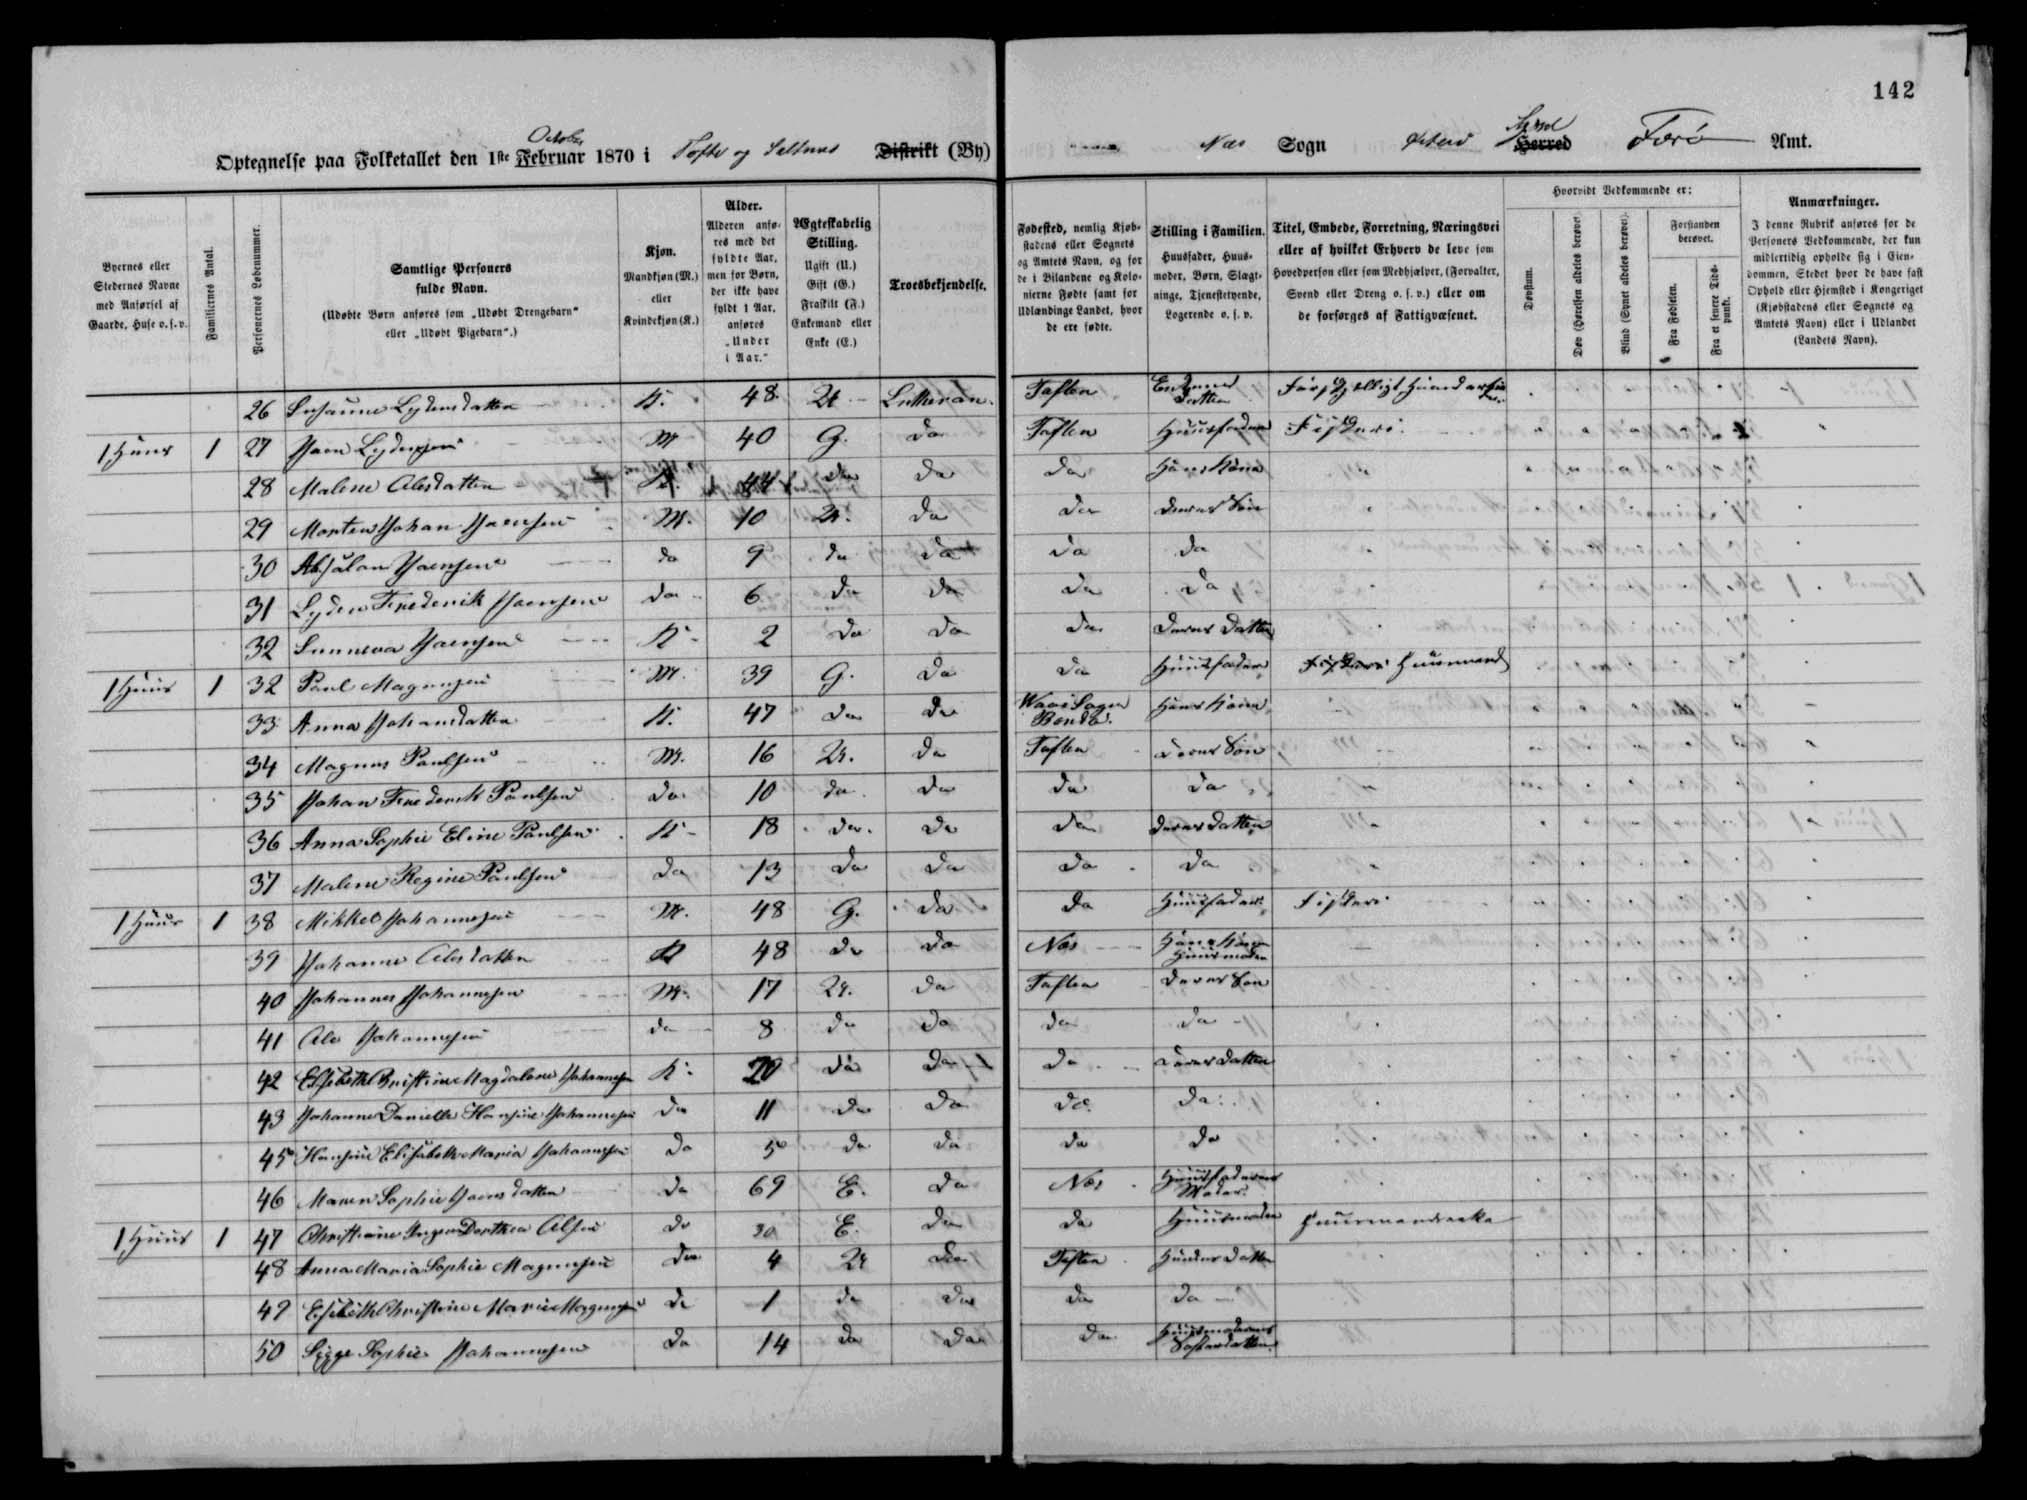 142
Optegnelse paa Folketallet den 1ste Februar October 1870 i Tofte og Saltnæs Distrikt (By)
Næs Sogn Herred Syssel Færø Amt.
Byernes eller Stedernes Navne med Anførsel af Gaarde, Huse o. s. v.
Familiernes Antal.
Personernes Løbenummer.
Samtlige Personers fulde Navn.
(Udøbte Børn anføres som „Udøbt Drengebarn" eller „Udøbt Pigebarn".)
Kjøn.
Mandkjøn (M.) eller Kvindekjøn (K.)
Alder.
Alderen anføres med det fyldte Aar, men for Børn, der ikke have fyldt 1 Aar, anføres „Under 1 Aar."
Ægteskabelig Stilling.
Ugift (U.) Gift (G.) Fraskilt (F.) Enkemand eller Enke (E.)
Troesbekjendelse.
Fødested, nemlig Kjøbstadens eller Sognets og Amtets Navn, og for de i Bilandene og Kolonierne Fødte samt for Udlændinge Landet, hvor de ere fødte.
Stilling i Familien.
Huusfader, Huusmoder, Børn, Slægtninge, Tjenestetyende, Logerende o. s. v.
Titel, Embede, Forretning, Næringsvei eller af hvilket Erhverv de leve som Hovedperson eller som Medhjælper, (Forvalter, Svend eller Dreng o. s. v.) eller om de forsørges af Fattigvæsenet.
Hvorvidt Vedkommende er:
Døvstum.
Døv (Hørelsen aldeles berøvet).
Blind (Synet aldeles berøvet).
Forstanden berøvet.
Fra Fødselen.
Fra et senere Tidspunkt.
Anmærkninger.
I denne Rubrik anføres for de Personers Vedkommende, der kun midlertidig opholde sig i Eiendommen, Stedet hvor de have fast Ophold eller Hjemsted i Kongeriget (Kjøbstadens eller Sognets og Amtets Navn) eller i Udlandet (Landets Navn).
26 Susanne Lydersdatten K. 48 U. Lutheran. Toften datten
1 Huus 1 27 Joen Lydersen M 40 G. do Toften Huusfader Fiskeri
28 Malene Olesdatten K. 44 do do do Hans Kone
29 Morten Johan Joensen M. 10 U. do do deres Søn
30 Absalon Joensen do 9 do do do do
31 Lyder Frederik Joensen do 6 do do do do
32 Sunneva Joensen K 2 do do do deres Datten
1 Huus 1 32 Poul Magnusen M. 39 G. do do Huusfader Fiskeri Huusmand
33 Anna Johansdatten K. 47 do do Sogn Bordø. Hans Kone
34 Magnus Poulsen M. 16 U. do Toften deres Søn
35 Johan Frederik Poulsen do 10 do do do do
36 Anna Sophie Eline Poulsen K 18 do do do deres datten
37 Malene Regine Poulsen do 13 do do do do
1 Huus 1 38 Mikkel Johannesen M. 48 G. do do Huusfader Fiskeri
39 Johanne Olesdatten K 48 do do Næs Hans Kone Huusmoder
40 Johannes Johannesen M. 17 U. do Toften deres Søn
41 Ole Johannesen do 8 do do do do
42 Elsebeth Cristine Magdalene Johannesen K. 20 do do do deres datten
43 Johanne Danielle Hansine Johannesen do 11 do do do do
45 Hansine Elisabeth Maria Johannesen do 5 do do do do
46 Maren Sophie Joensdatten do 69 E. do Næs Huusfaderens Moder
1 Huus 1 47 Christiane Inger Dorthea Olsen do 30 E. do do Huusmoder Huusmandsenke
48 Anna Maria Sophie Magnusen do 4 U do Toften Hendes datten
49 Elsebeth Christine Marie Magnusen do 1 do do do do
50 Sigge Sophie Johannesen do 14 do do do Huusmoderens Søsterdatten